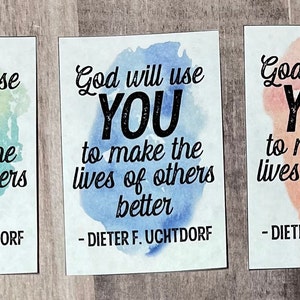 se
he
ers
ORF
God will use
YOU
to make the
lives of others
better
- DIETER F. UCHTDORF
God
Y
to m
lives
- DIETER